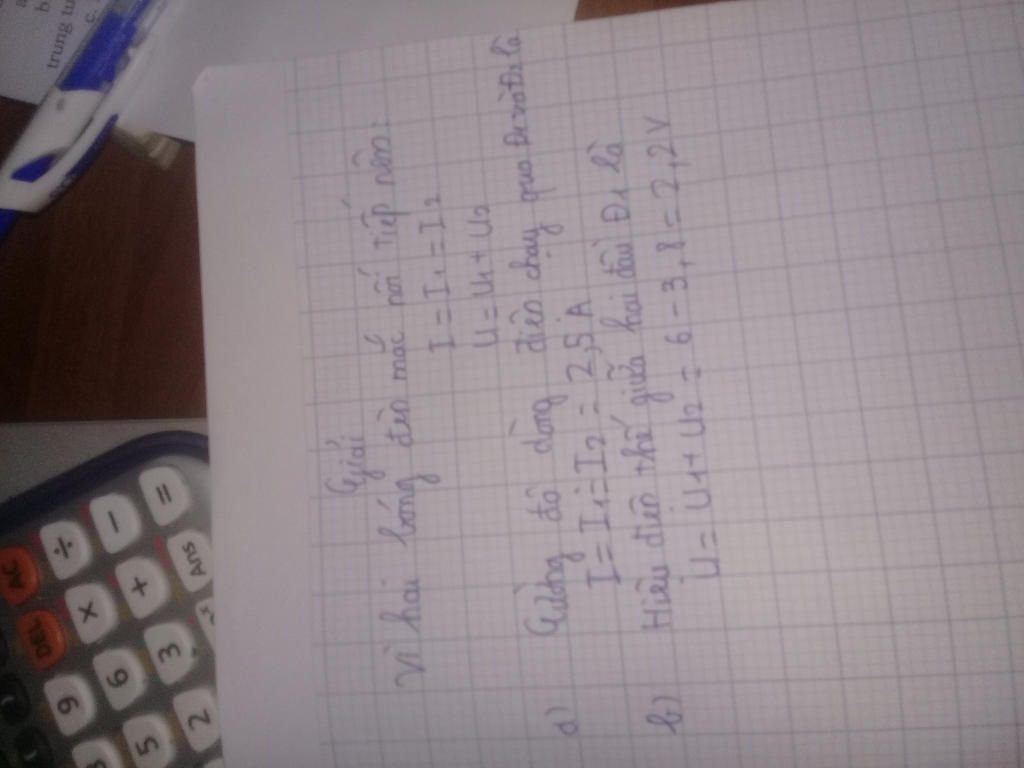 Giải
Vì hai bóng đèn mắc nối tiếp nên:
I = I1 = I2
U = U1 + U2
a) Cường độ dòng điện chạy qua Đ1 và Đ2 là
I = I1 = I2 = 2,5A
b) Hiệu điện thế giữa hai đầu Đ1 là
U = U1 + U2 = 6 - 3,8 = 2,2V
trung tu
c.
b
AC
DEL
÷
-
=
×
+
Ans
9
6
3
5
2